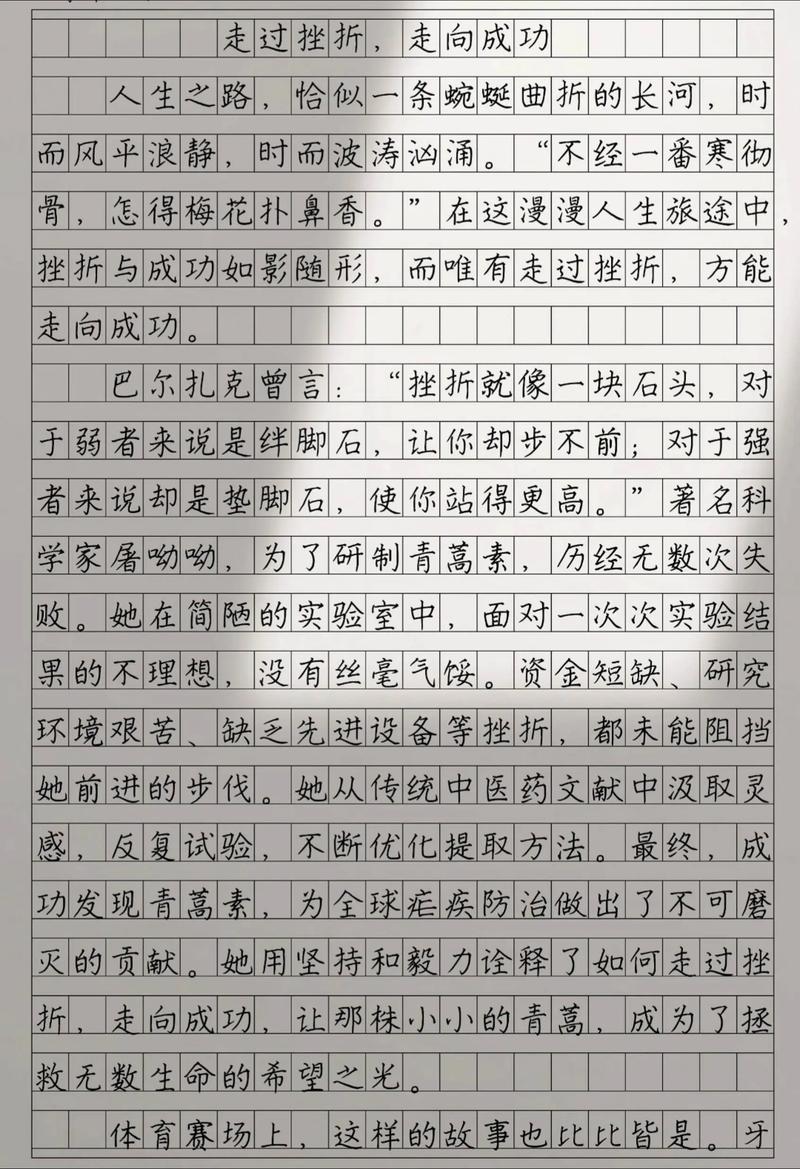 走过挫折，走向成功
人生之路，恰似一条蜿蜒曲折的长河，时
而风平浪静，时而波涛汹涌。“不经一番寒彻
骨，怎得梅花扑鼻香。”在这漫漫人生旅途中，
挫折与成功如影随形，而唯有走过挫折，方能
走向成功。
巴尔扎克曾言：“挫折就像一块石头，对
于弱者来说是绊脚石，让你却步不前；对于强
者来说却是垫脚石，使你站得更高。”著名科
学家屠呦呦，为了研制青蒿素，历经无数次失
败。她在简陋的实验室中，面对一次次实验结
果的不理想，没有丝毫气馁。资金短缺、研究
环境艰苦、缺乏先进设备等挫折，都未能阻挡
她前进的步伐。她从传统中医药文献中汲取灵
感，反复试验，不断优化提取方法。最终，成
功发现青蒿素，为全球疟疾防治做出了不可磨
灭的贡献。她用坚持和毅力诠释了如何走过挫
折，走向成功，让那株小小的青蒿，成为了拯
救无数生命的希望之光。
体育赛场上，这样的故事也比比皆是。牙